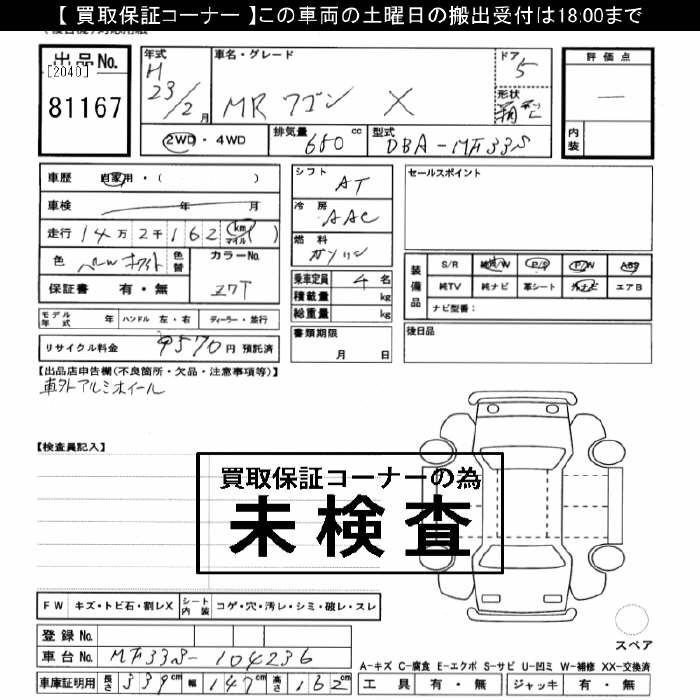 【 買取保証コーナー 】この車両の土曜日の搬出受付は18:00まで
出品No.
[2040]
81167
年式
H
23/2月
車名・グレード
MRワゴン X
ドア
5
形状
評価点
—
内装
2WD・4WD
排気量 650 cc
型式 DBA-MF33S
車歴 自家用・( )
車検 年 月
走行 14万2千162 (km マイル)
色 パールホワイト
色替
カラーNo.
Z7T
保証書 有・無
シフト
AT
冷房
AAC
燃料
ガソリン
乗車定員 4名
積載量 kg
総重量 kg
セールスポイント
装備品
S/R 純正A/W P/S P/W ABS
純TV 純ナビ 革シート 外ナビ エアB
ナビ型番:
モデル年式 年 ハンドル 左・右 ディーラー・並行
書類期限
月 日
後日品
リサイクル料金 9570円 預託済
【出品店申告欄(不良箇所・欠品・注意事項等)】
車外アルミホイール
【検査員記入】
買取保証コーナーの為
未検査
FW キズ・トビ石・割レX シート内装 コゲ・穴・汚レ・シミ・破レ・スレ
登録No.
車台No. MF33S-104236
車庫証明用 長さ 339cm 幅 147cm 高さ 162cm
スペア
A-キズ C-腐食 E-エクボ S-サビ U-凹ミ W-補修 XX-交換済
工具 有・無 ジャッキ 有・無